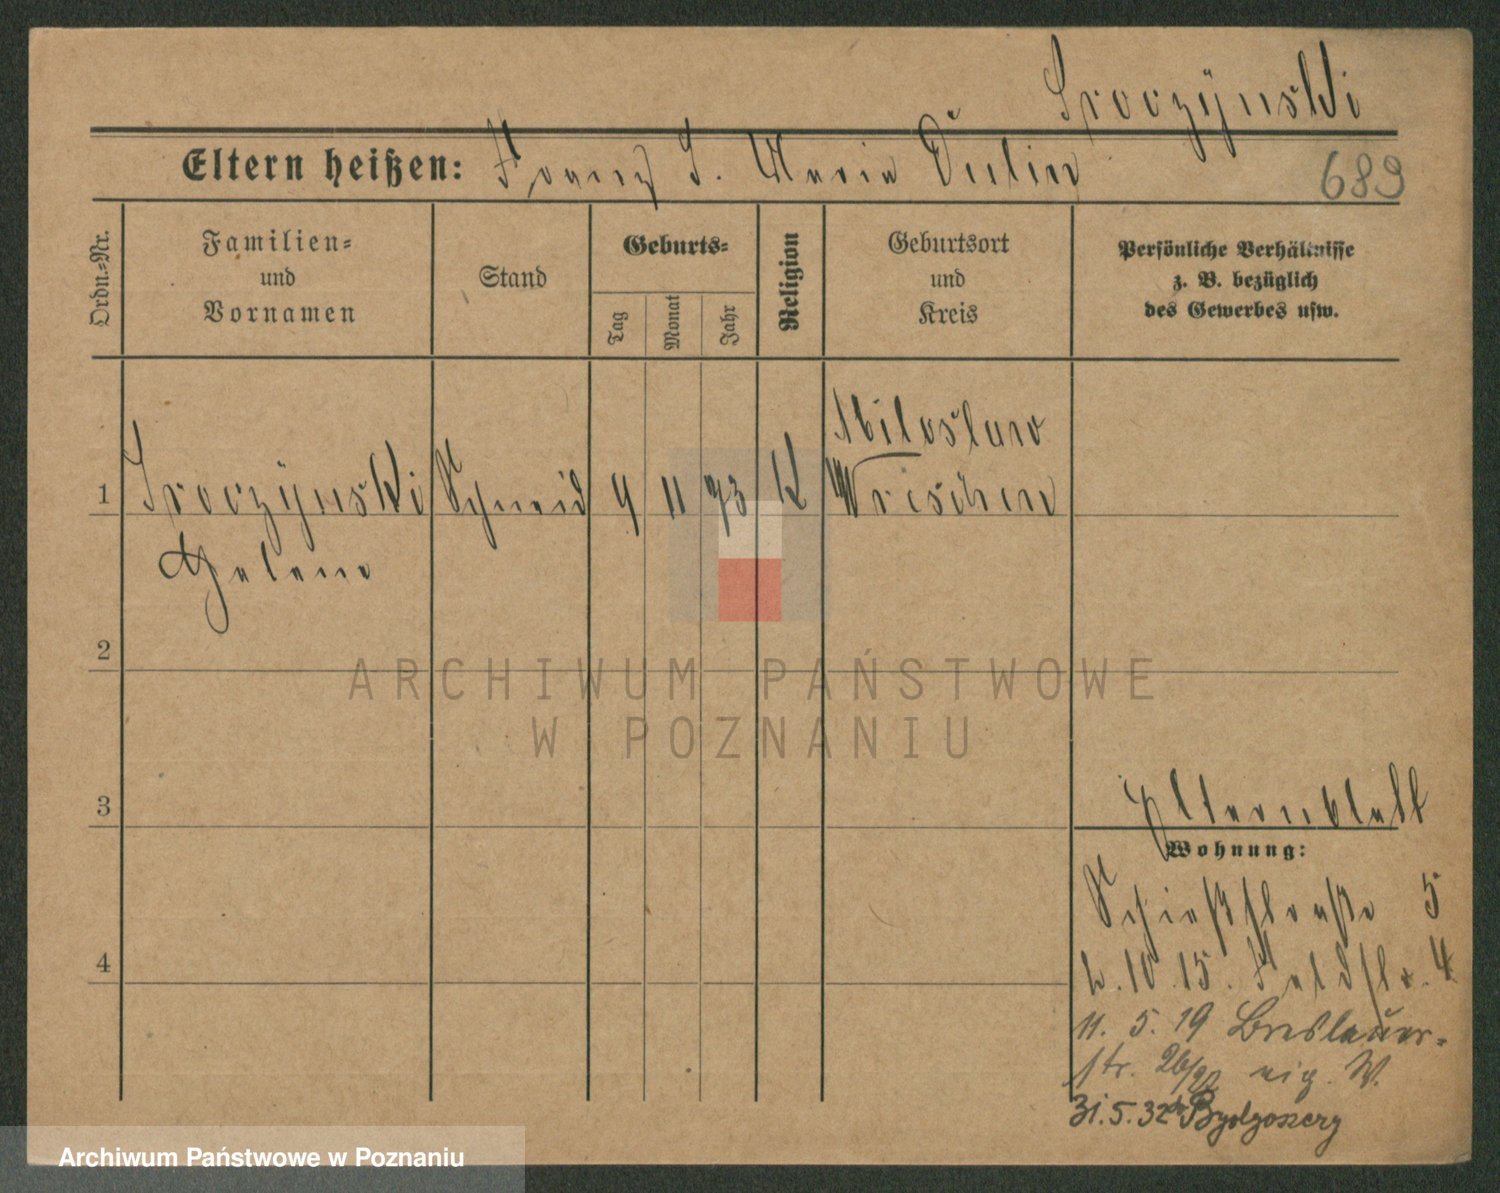 Sroczyński
Eltern heißen: Franz S. Maria Dulin
689
Ordn.=Nr.
Familien=
und
Vornamen
Stand
Geburts=
Tag
Monat
Jahr
Religion
Geburtsort
und
Kreis
Persönliche Verhältnisse
z. B. bezüglich
des Gewerbes usw.
Miloslaw
1 Sroczyński Schneid 9 11 93 K Wreschen
Helene
2
ARCHIWUM PAŃSTWOWE
W POZNANIU
3
Elternblatt
Wohnung:
Schießstraße 5
4
2.10.15. Feldstr. 4
11. 5. 19 Breslauer-
str. eig. W.
31.5.32 Bydgoszcz
Archiwum Państwowe w Poznaniu